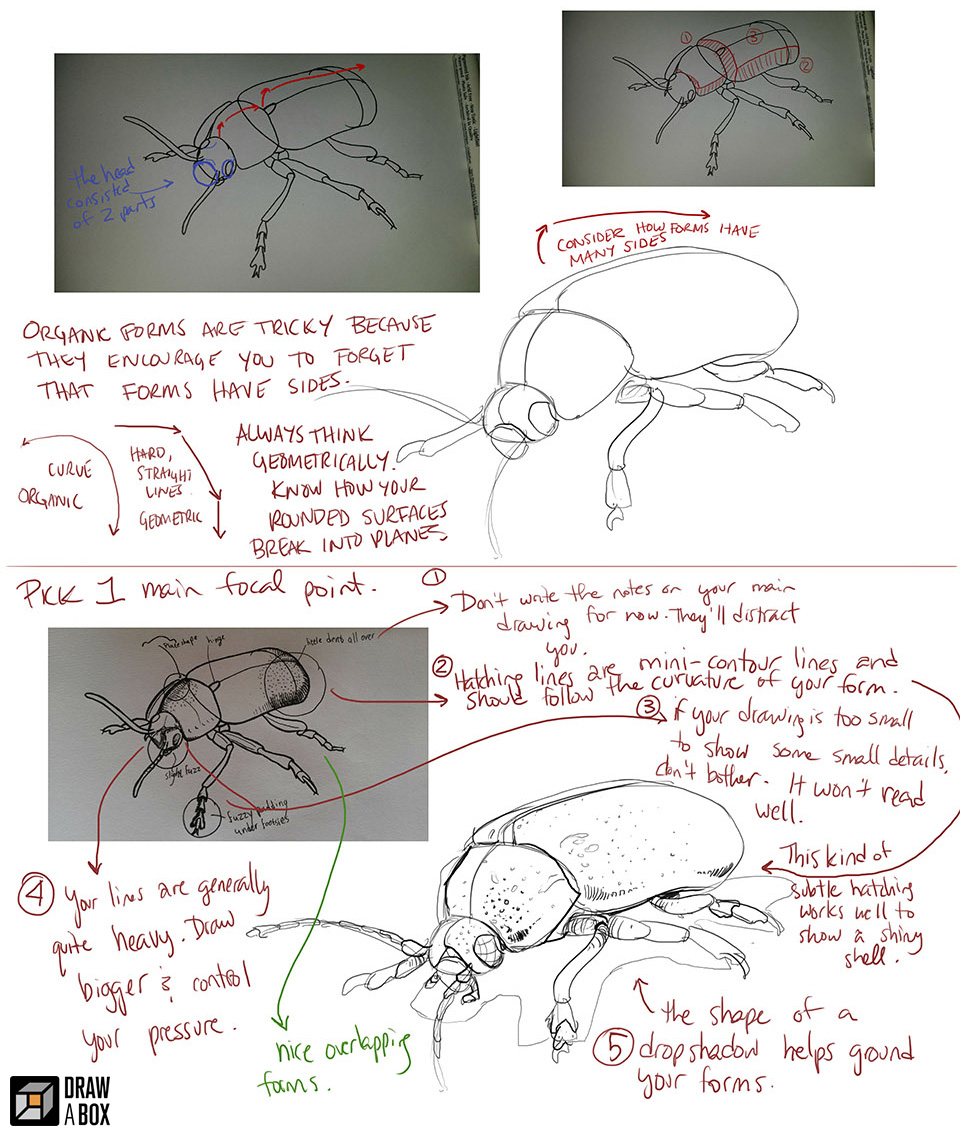 the head
consisted
of 2 parts
①
③
②
CONSIDER HOW FORMS HAVE
MANY SIDES
ORGANIC FORMS ARE TRICKY BECAUSE
THEY ENCOURAGE YOU TO FORGET
THAT FORMS HAVE SIDES.
CURVE
ORGANIC
HARD,
STRAIGHT
LINES.
GEOMETRIC
ALWAYS THINK
GEOMETRICALLY.
KNOW HOW YOUR
ROUNDED SURFACES
BREAK INTO PLANES.
PICK 1 main focal point.
hinge
little dents all over
slight fuzz
fuzzy padding
under footsies
①
Don't write the notes on your main
drawing for now. They'll distract
you.
②
Hatching lines are mini-contour lines and
should follow the curvature of your form.
③ if your drawing is too small
to show some small details,
don't bother. It won't read
well.
This kind of
subtle hatching
works well to
show a shiny
shell.
④ Your lines are generally
quite heavy. Draw
bigger & control
your pressure.
nice overlapping
forms.
⑤ the shape of a
dropshadow helps ground
your forms.
DRAW
A BOX